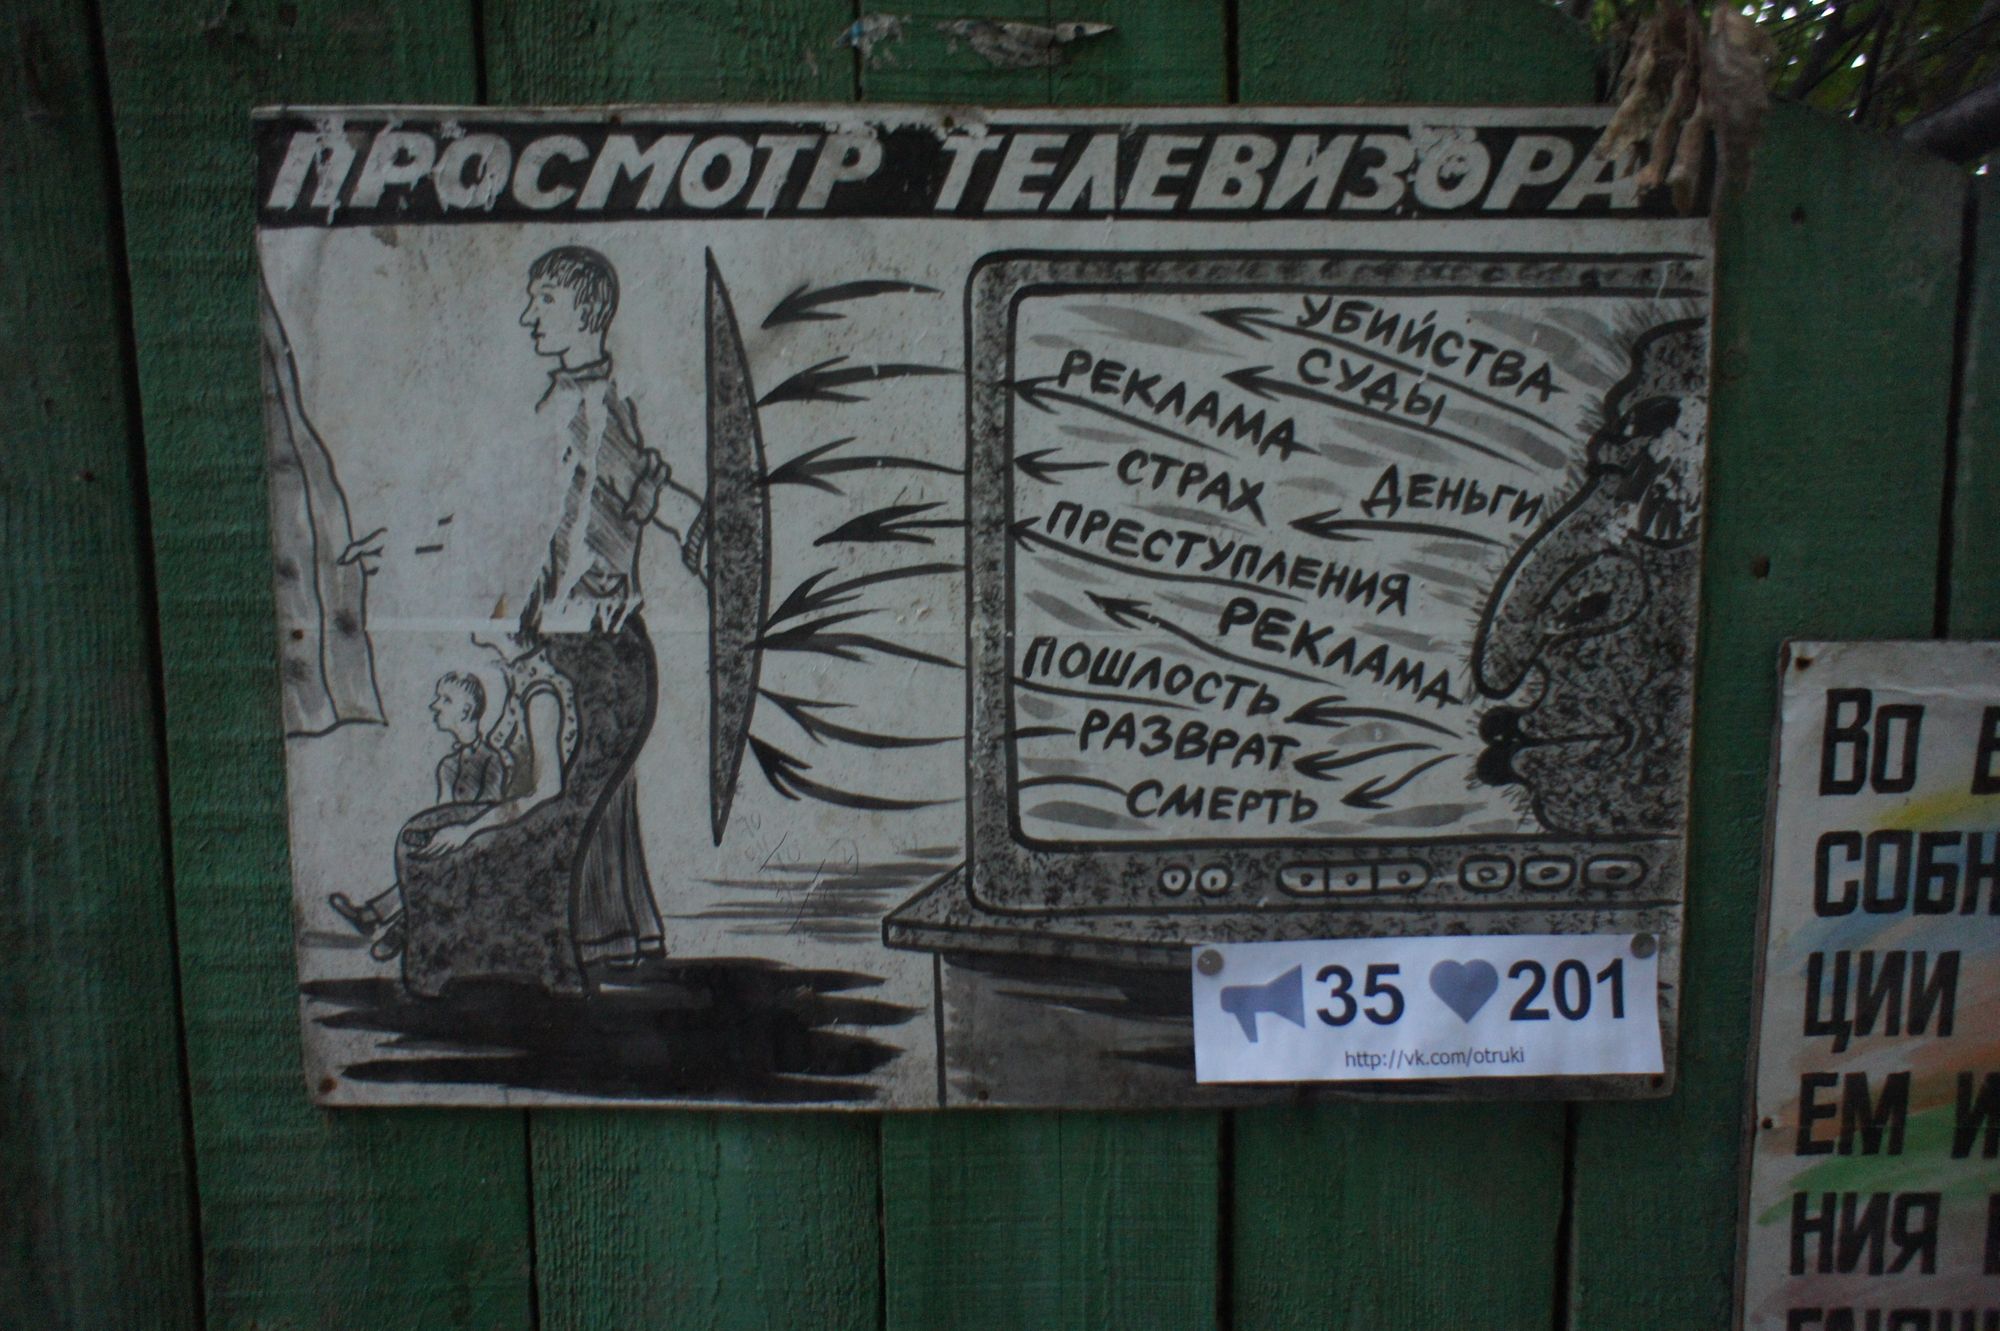 ПРОСМОТР ТЕЛЕВИЗОРА
УБИЙСТВА
СУДЫ
РЕКЛАМА
ДЕНЬГИ
СТРАХ
ПРЕСТУПЛЕНИЯ
РЕКЛАМА
ПОШЛОСТЬ
РАЗВРАТ
СМЕРТЬ
35 201
http://vk.com/otruki
ВО
СОБН
ЦИИ
ЕМ И
НИЯ